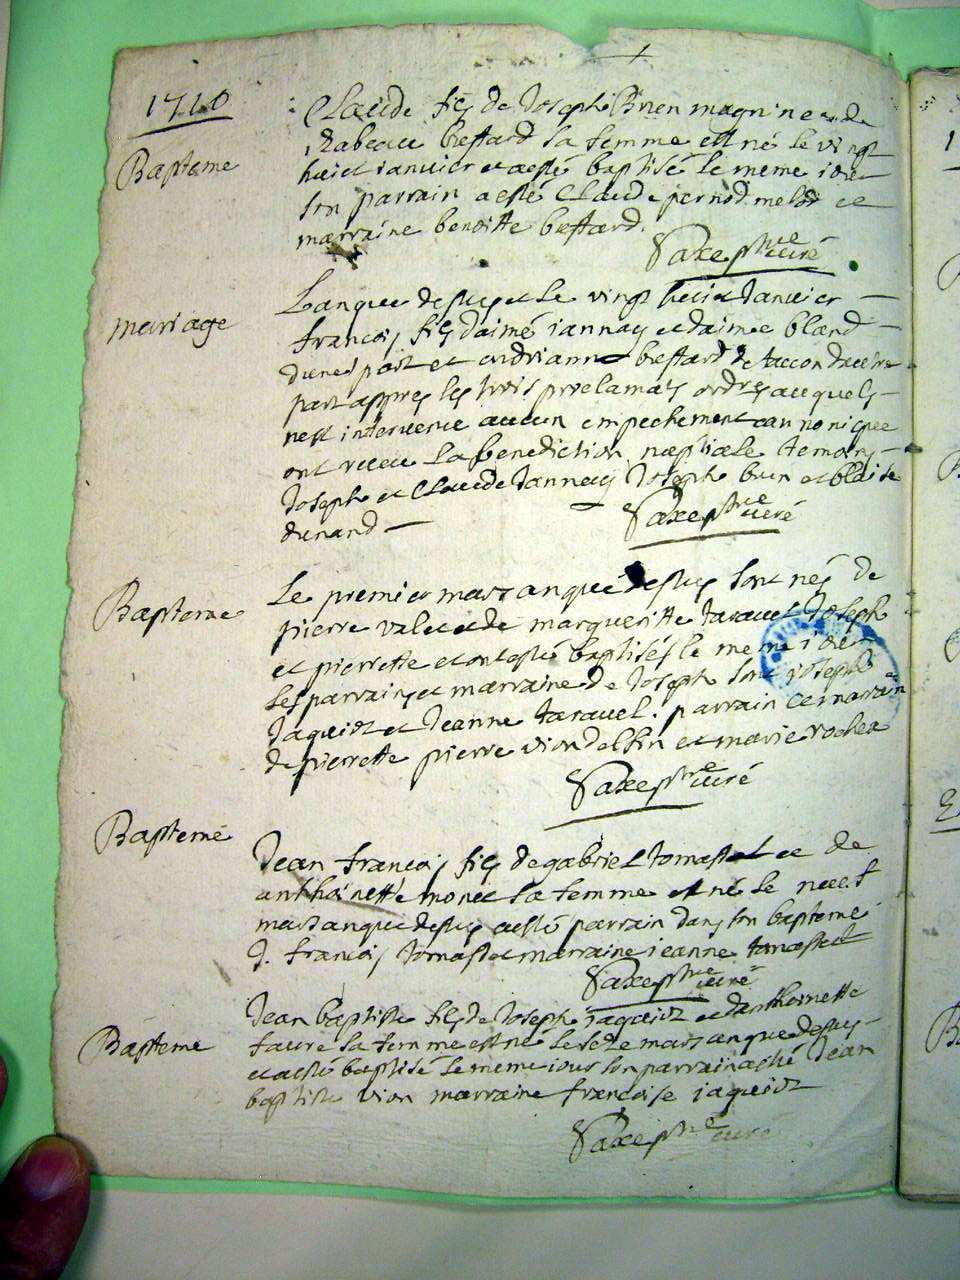 1710
Bapteme
Claude fils de Joseph Binen magnin et de
beffard sa femme est né le vingt
huict ianvier et a esté baptisé le meme iour
son parrain a esté Claude pernod et
marraine benoitte beffard.
Saxe ptre curé
mariage
L'anque desus et le vingt huict Janvier
francois fils d'aimé iannay et d'aimee bland
d'une part et andrianne beffard de d'autre
part appres les trois proclama͠s ordres auquels
nest intervenu aucun empechement cannonique
ont receu la benediction nuptiale temoins
Joseph et Claude Jannay Joseph brun et blaise
dunand
Saxe ptre curé
Bapteme
Le premier mars anque desus sont nés de
pierre valet et de margueritte taravel Joseph
et pierrette et ont esté baptisés le meme iour
les parrains et marraine de Joseph sont ioseph
Jaquier et Jeanne taravel. parrain et marrain
de pierrette pierre vion delfin et marie rochea
Saxe ptre curé
Bapteme
Jean francois fils de gabriel tomasset et de
anthoinette monet sa femme est né le neuf
mars anque desus a esté parrain dans son bapteme
d. francois tomasset marraine ieanne tomasset
Saxe ptre curé
Bapteme
Jean baptiste fils de Joseph iaquier et d'anthoinette
favre sa femme est né le seze mars anque desus
et a esté baptisé le meme iour son parrain a esté Jean
baptiste vion marraine francoise iaquier
Saxe ptre curé